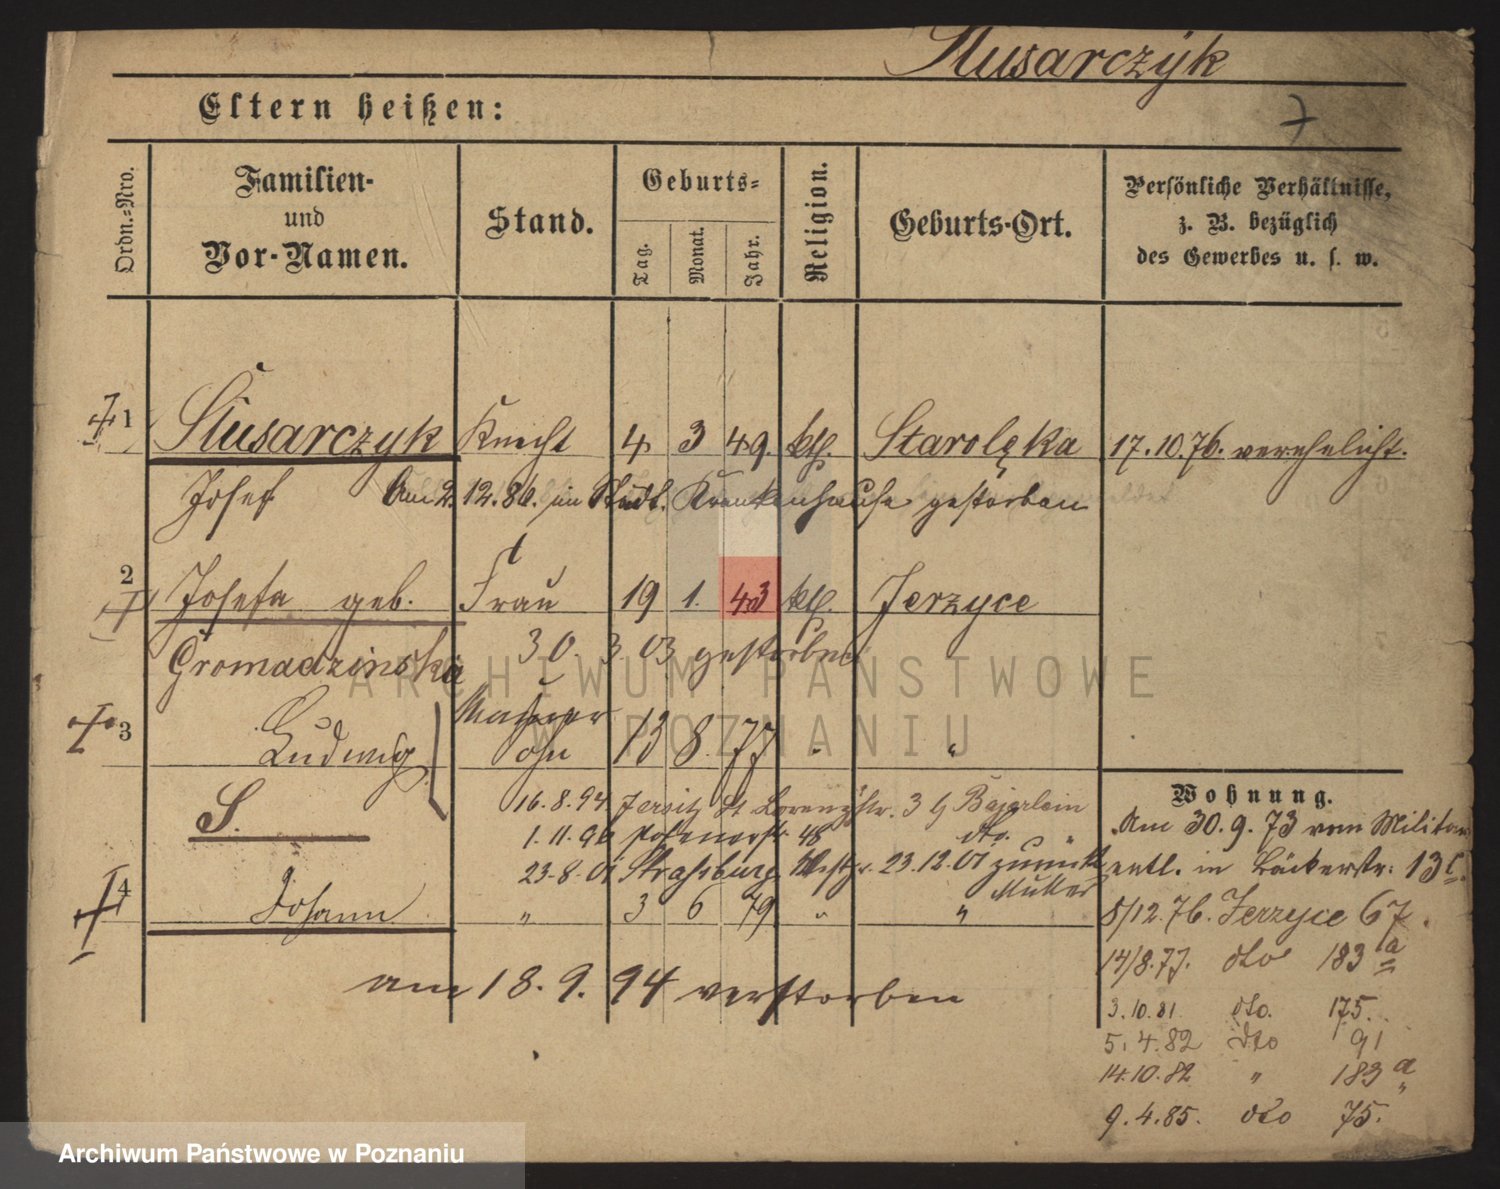 Slusarczyk
Eltern heißen:
7
Ordn.=Nro.
Familien-
und
Vor-Namen.
Stand.
Geburts=
Tag.
Monat.
Jahr.
Religion.
Geburts-Ort.
Persönliche Verhältnisse,
z. B. bezüglich
des Gewerbes u. s. w.
1 Slusarczyk Knecht 4 3 49. kth. Starolęka 17.10.76. verehelicht.
Josef Am 2. 12. 86. im Städt. Krankenhause gestorben
2 Josefa geb. Frau 19 1. 43 kth. Jerzyce
Gromadzinska 30. 3. 03 gestorben
3 Ludwig Sohn 13 8. 77 " "
S.
16.8.94 Jersitz St Lorenzstr. 3 b Bajerlein
1.11.96 Posenerstr. 48 dto. "
23.8.01 Strasburg Westpr. 23.12.01 zurück
Mutter
4 Johann " 3 6 79 " "
am 18. 9. 94 verstorben
Wohnung.
Am 30.9.73 vom Militair
entl. in Bäckerstr. 13c.
8/12.76. Jerzyce 67.
14/8.77. dto 183 a
3.10.81. dto. 175.
5.4.82 dto 91
14.10.82 " 183 a
9.4.85. dto 75.
ARCHIWUM PAŃSTWOWE
W POZNANIU
Archiwum Państwowe w Poznaniu